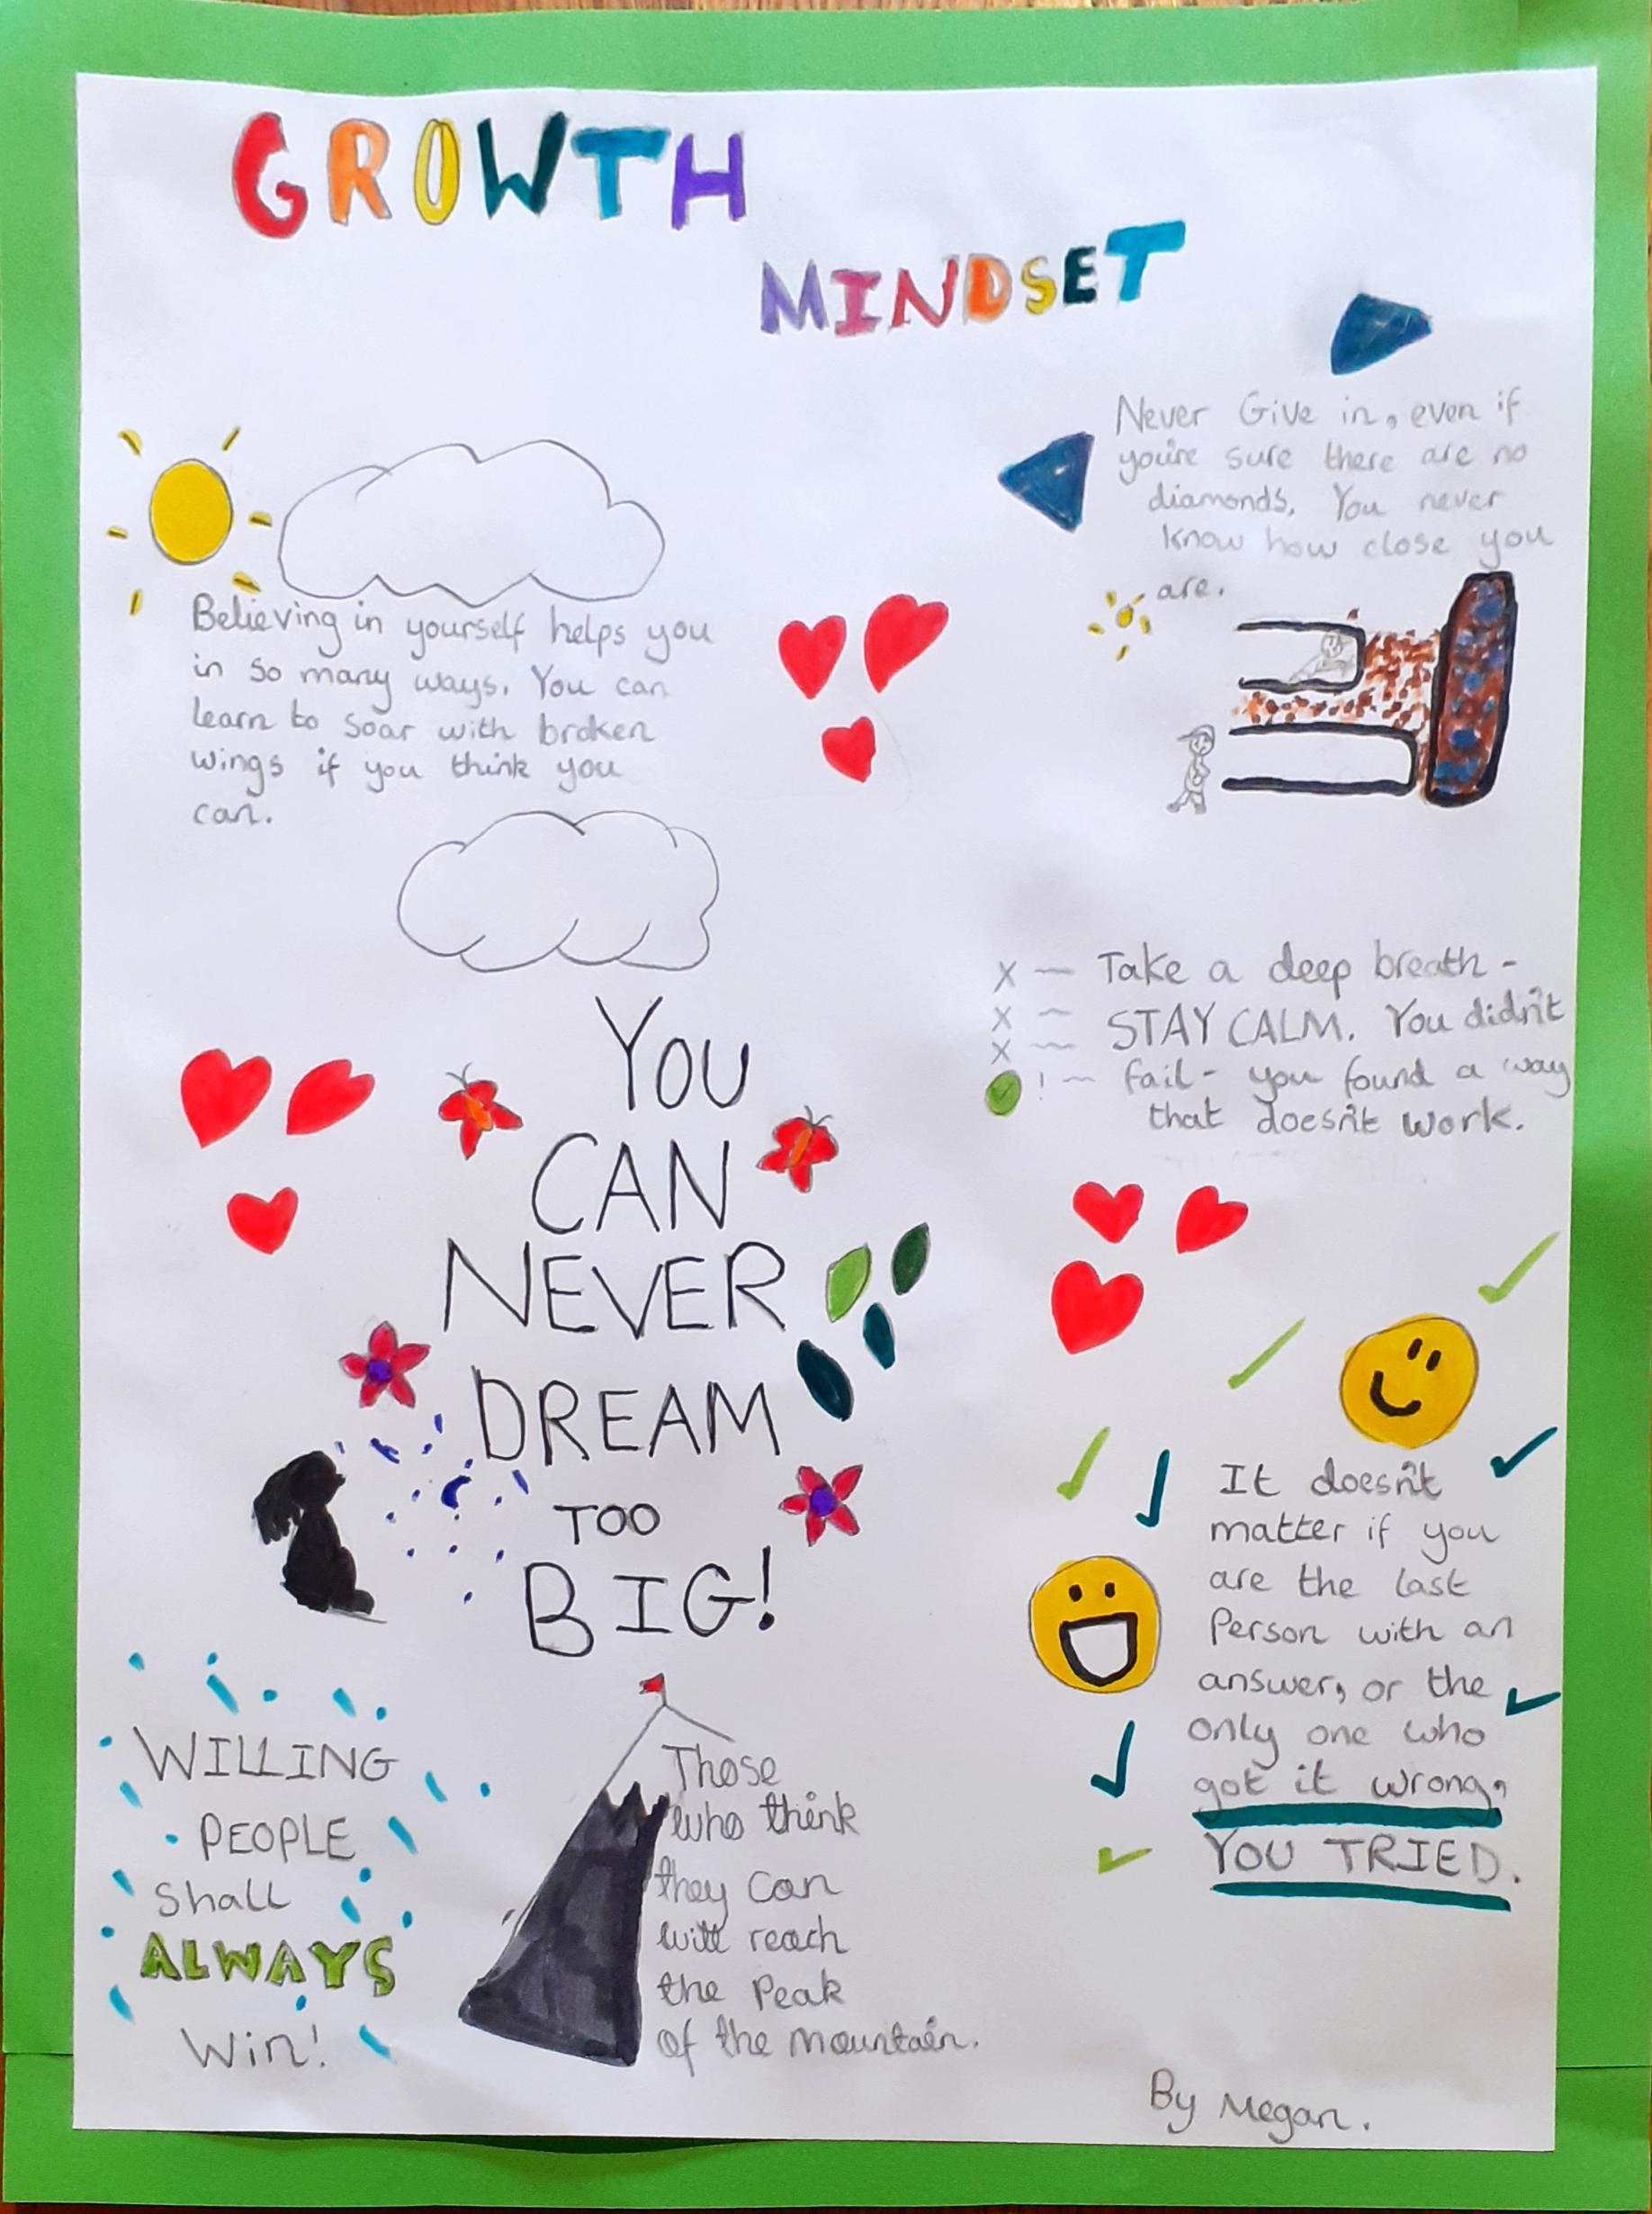 GROWTH
MINDSET
Never Give in, even if
you're sure there are no
diamonds. You never
know how close you
are.
Believing in yourself helps you
in so many ways. You can
learn to soar with broken
wings if you think you
can.
X — Take a deep breath -
X ~ STAY CALM. You didn't
X ~~ fail - you found a way
! ~ that doesn't work.
YOU
CAN
NEVER
DREAM
TOO
BIG!
It doesn't
matter if you
are the last
Person with an
answer, or the
only one who
got it wrong,
YOU TRIED.
WILLING
PEOPLE
Shall
ALWAYS
Win!
Those
who think
they can
will reach
the Peak
of the mountain.
By Megan.